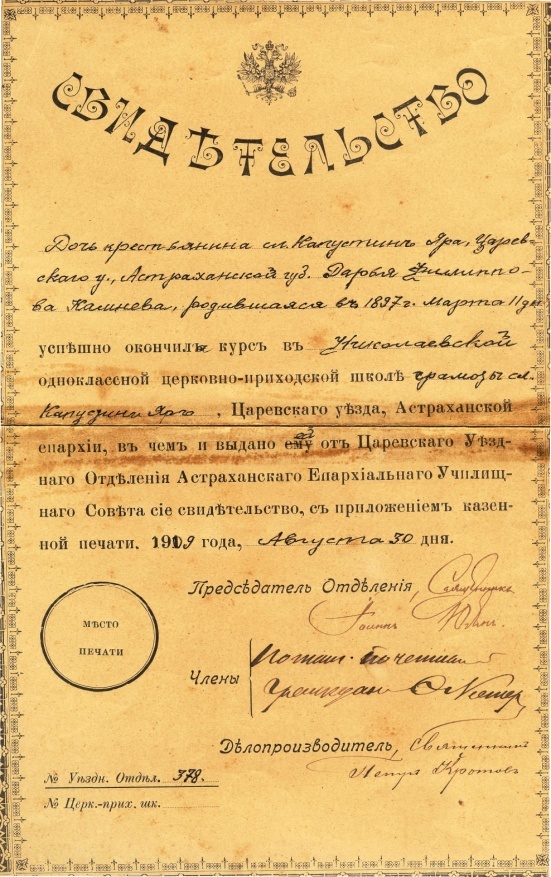 СВИДѢТЕЛЬСТВО
Дочь крестьянина сл. Капустинъ Яра, Царев-
скаго у., Астраханской губ. Дарья Филиппо-
ва Камнева, родившаяся въ 1897 г. Марта 11 дня
успѣшно окончила курсъ въ Николаевской
одноклассной церковно-приходской школѣ грамоты сл.
Капустинъ Яръ, Царевскаго уѣзда, Астраханской
епархіи, въ чемъ и выдано ему ей отъ Царевскаго Уѣзд-
наго Отдѣленія Астраханскаго Епархіальнаго Училищ-
наго Совѣта сіе свидѣтельство, съ приложеніемъ казен-
ной печати. 1909 года, Августа 30 дня.
Предсѣдатель Отдѣленія, Священникъ
Іоаннъ
МѢСТО
ПЕЧАТИ
Члены
Потом. Почетный
Гражданинъ
Дѣлопроизводитель, Священникъ
Петръ Кротовъ
№ Уѣздн. Отдѣл. 378.
№ Церк.-прих. шк.